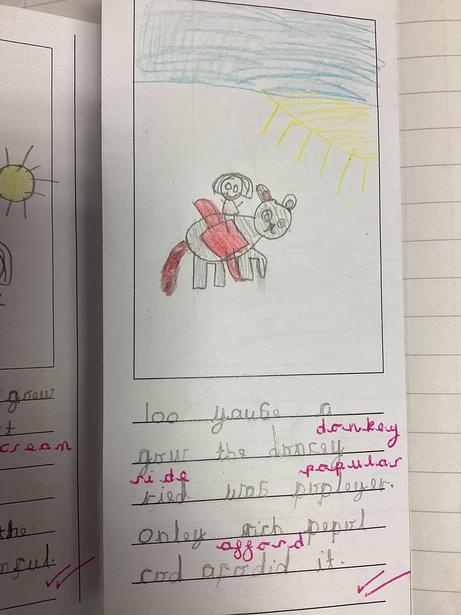 grow
cream
the
100 yause a
donkey
the doncey
ride popular
ried was pupleyer.
onley rich pepol
afford
cod afordid it.